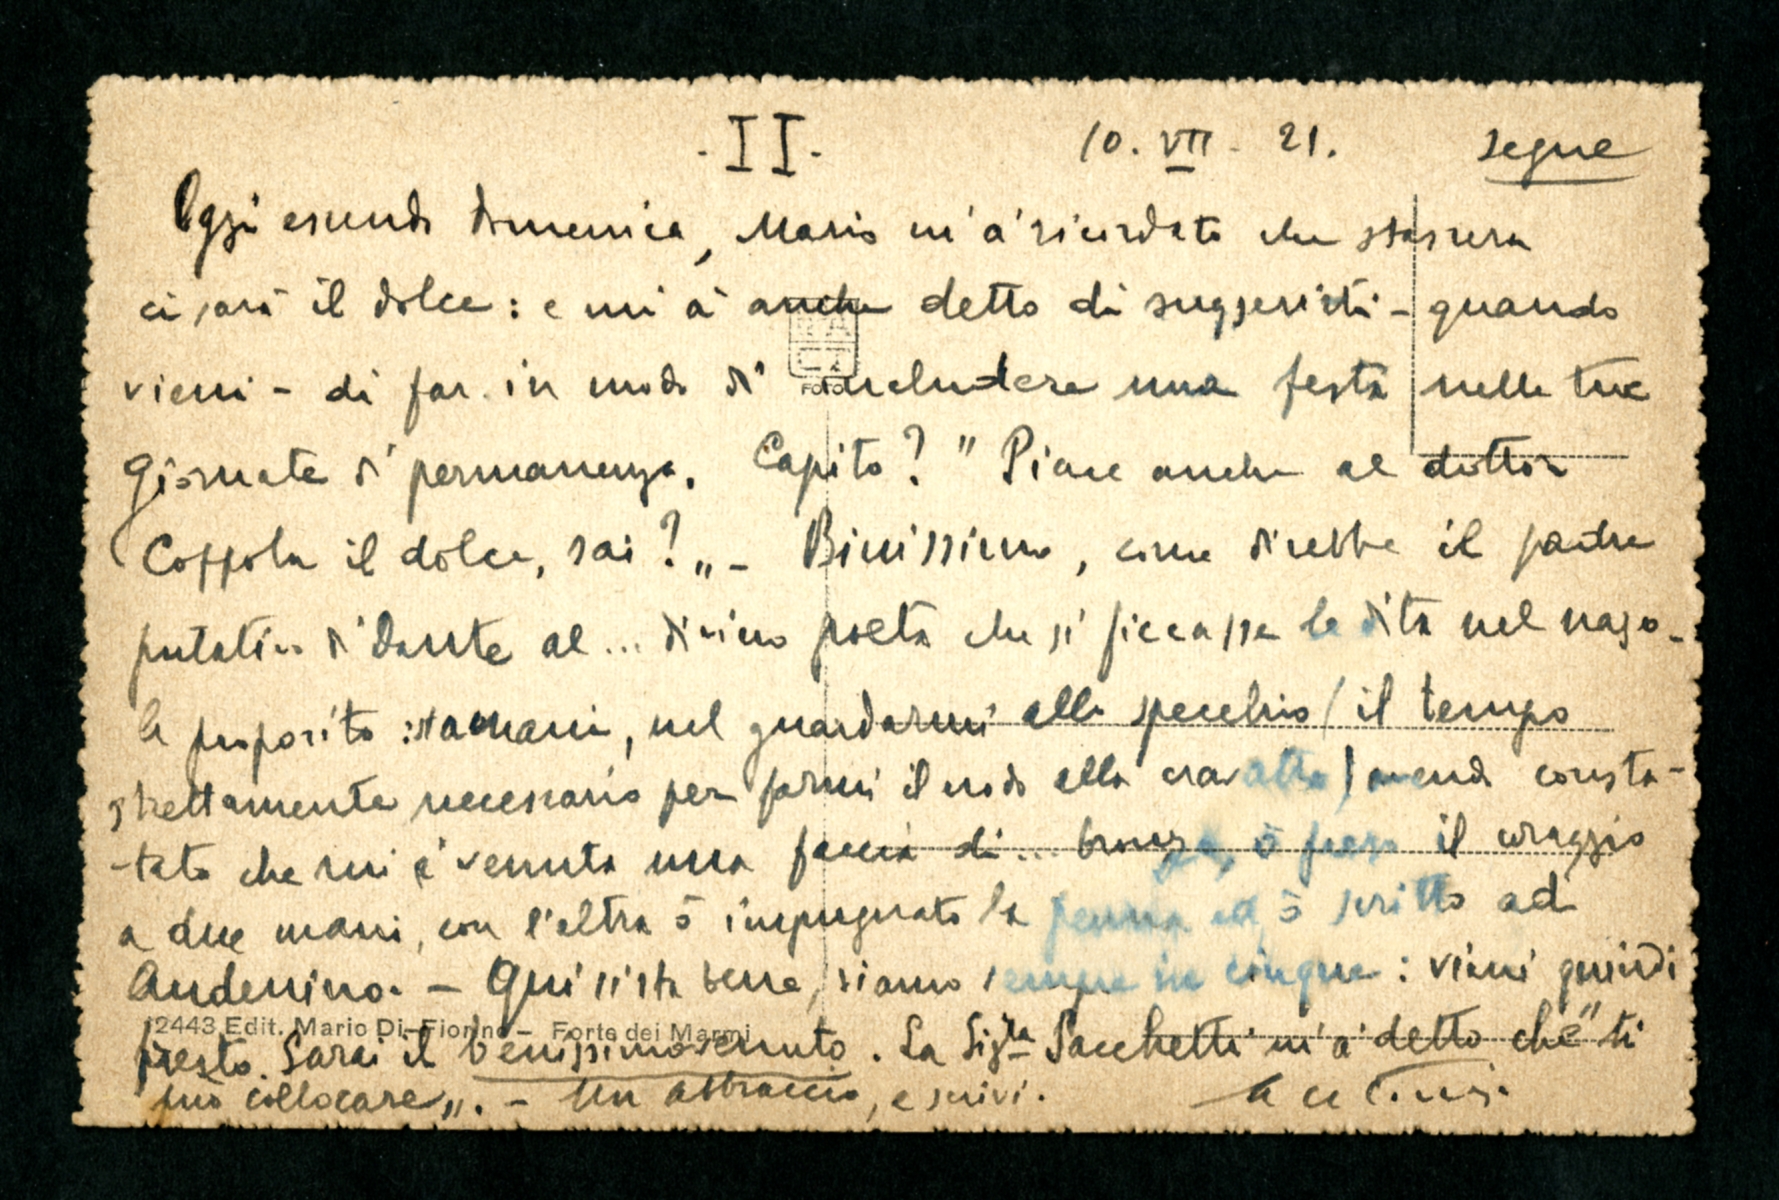 - II - 10. VII - 21. segue
Oggi essendo domenica, Mario m'à ricordato che stassera
ci sarà il dolce: e mi à anche detto di suggerirti - quando
vieni - di far in modo d' includere una festa nelle tue
giornate di permanenza. Capito? " Piace anche al dottor
Coppola il dolce, sai? „ - Binissimo, come direbbe il padre
putativo di Dante al ... divino poeta che si ficcasse le dita nel naso.
A proposito: stamani, nel guardarmi allo specchio (il tempo
strettamente necessario per farmi il nodo alla cravatta) avendo consta-
-tato che mi è venuta una faccia di ... bronzo, ò preso il coraggio
a due mani, con l'altra ò impugnato la penna ed ò scritto ad
Andenino. - Qui si sta bene, siamo sempre in cinque: vieni quindi
12443 Edit. Mario Di Fiorino - Forte dei Marmi
presto. Sarai il benissimovenuto. La Sigta Sacchetti m'à detto che " ti
può collocare „. - Un abbraccio, e scrivi.
FOTO